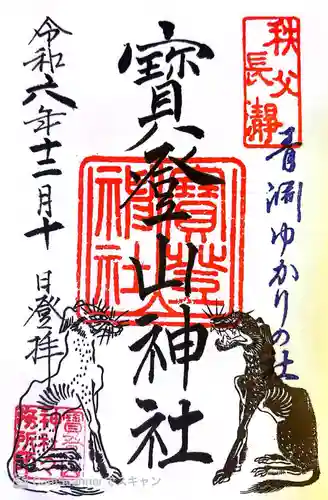 秩父
長瀞
青淵ゆかりの社
寶登山神社
寶登山神社
令和六年十二月十日登拝
寶登山
神社
務所印
でスキャン